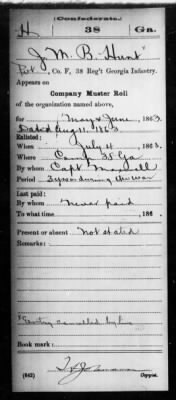 Confederate.
H 38 Ga.
J M B Hunt
Pvt, Co. F, 38 Reg't Georgia Infantry.
Appears on
Company Muster Roll
of the organization named above,
for May & June, 1863.
Dated Aug 11, 1863
Enlisted:
When July 4, 1863.
Where Camp 38 Ga
By whom Capt
Period 3 years during the war
Last paid:
By whom Never paid
To what time , 186 .
Present or absent Not stated
Remarks:
Entry cancelled by line
Book mark:
(642) Copyist.